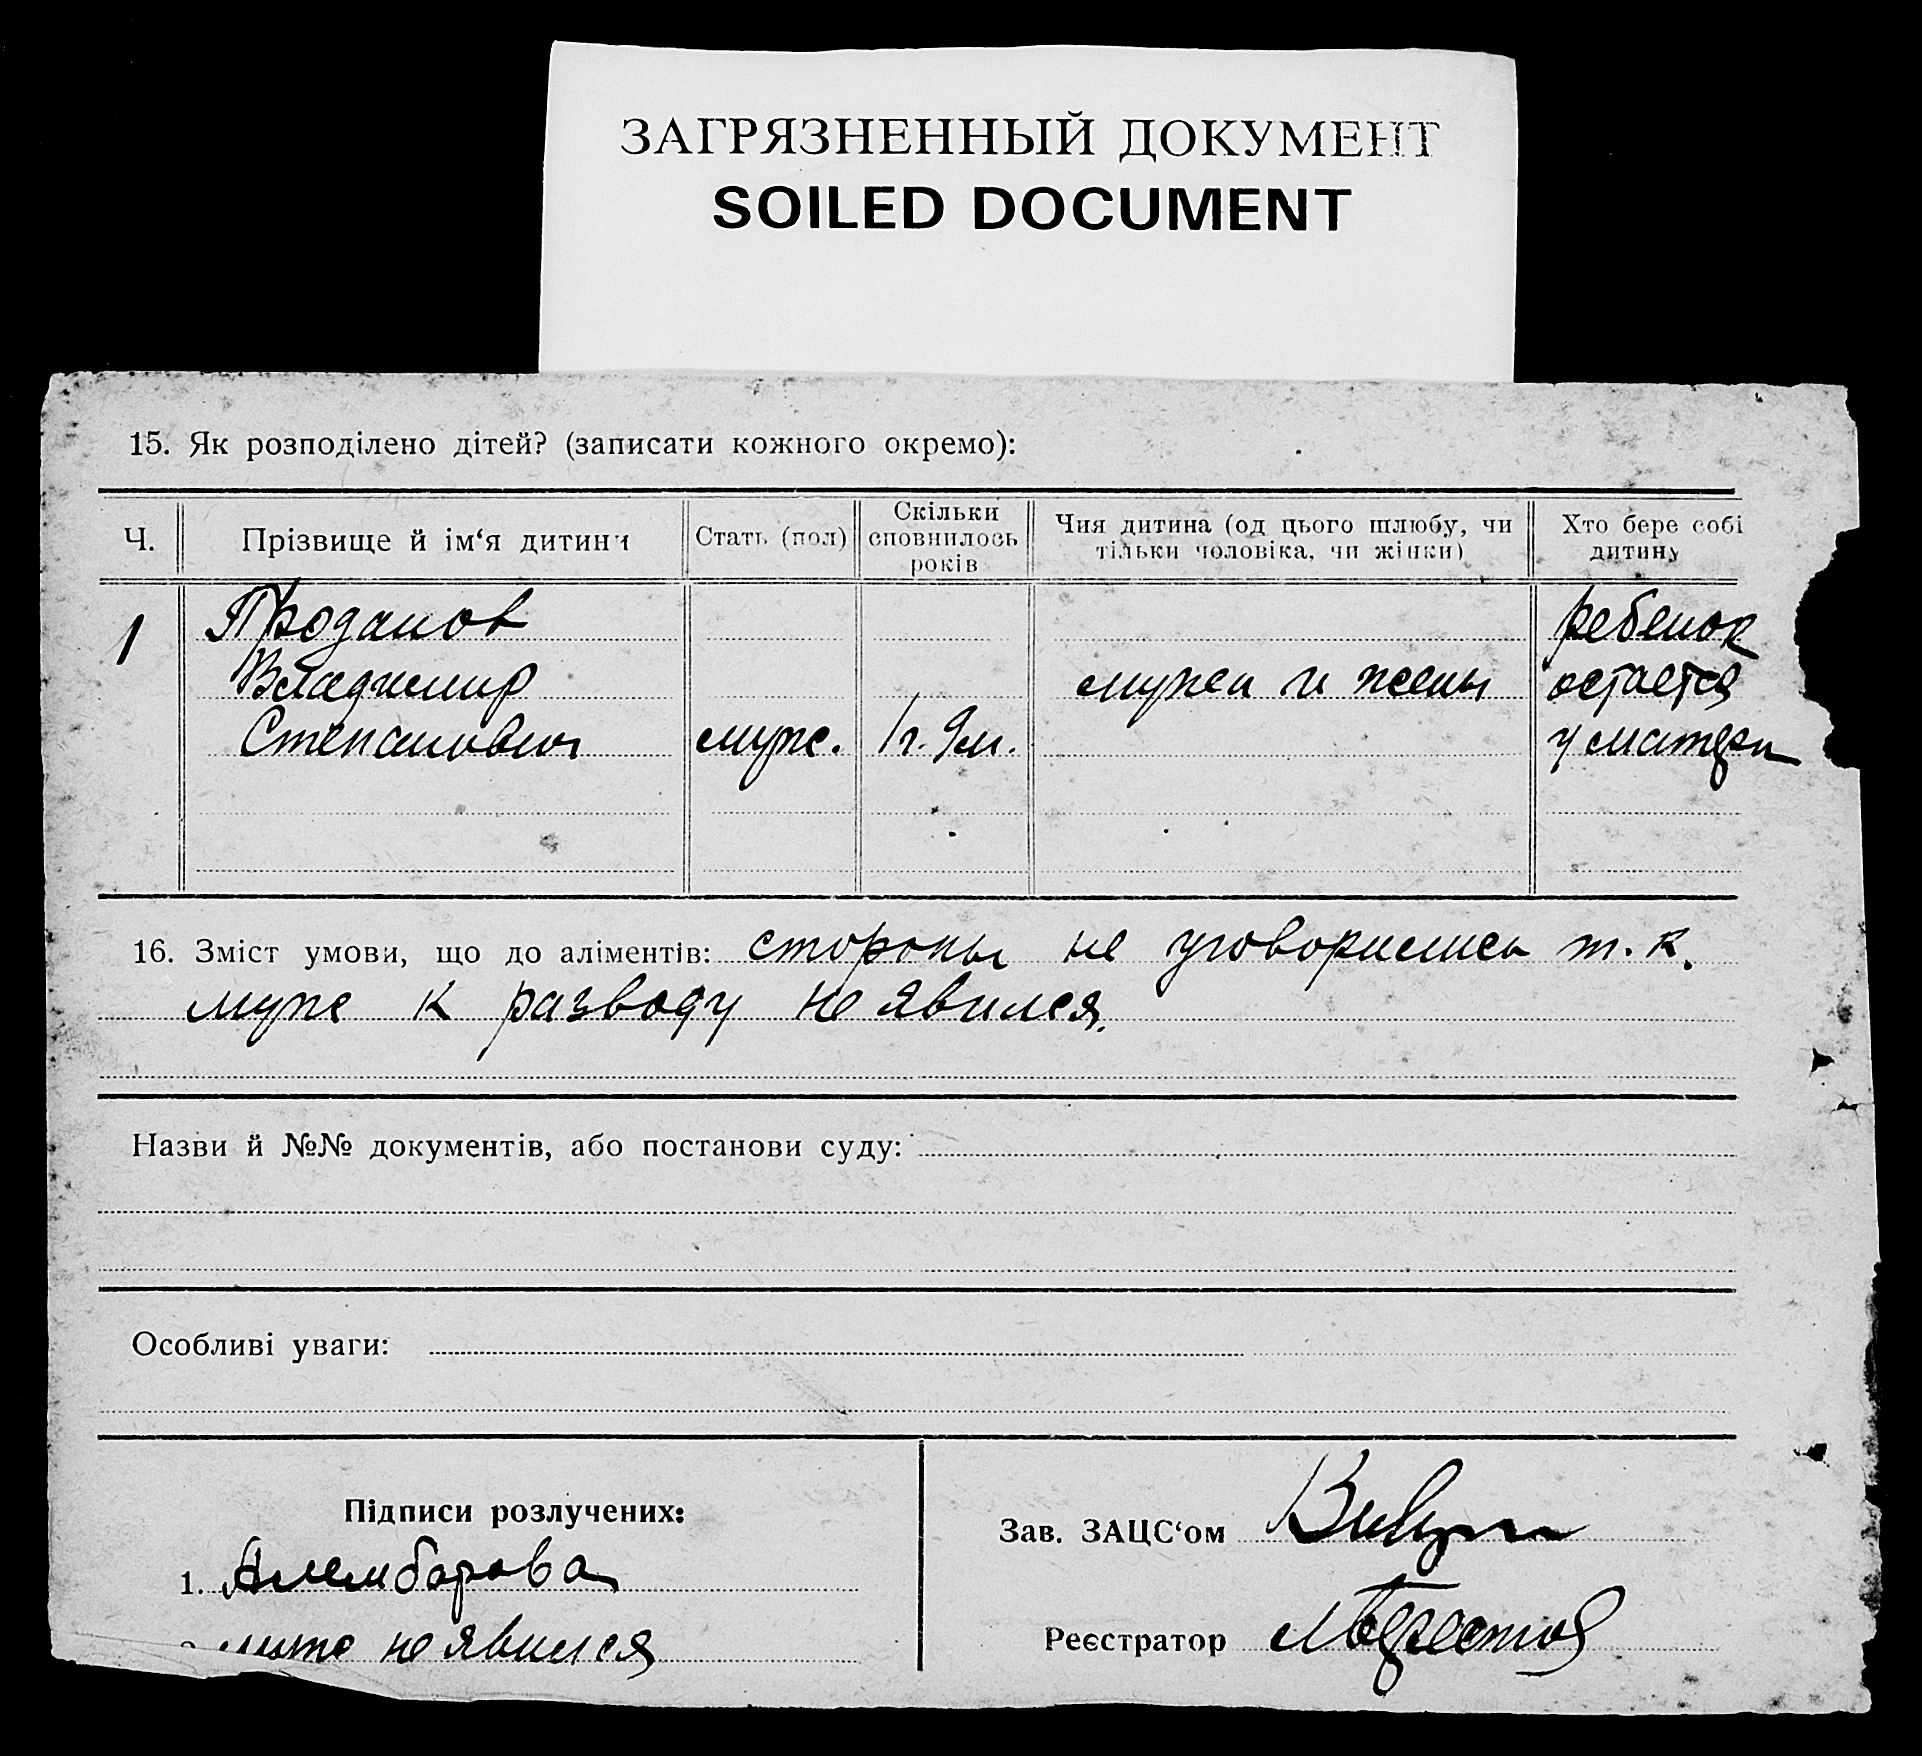 ЗАГРЯЗНЕННЫЙ ДОКУМЕНТ
SOILED DOCUMENT
15. Як розподілено дітей? (записати кожного окремо):
Ч.
Прізвище й ім‘я дитини
Стать (пол)
Скільки
сповнилось
років
Чия дитина (од цього шлюбу, чи
тільки чоловіка, чи жінки)
Хто бере собі
дитину
1
Проданов
Владимир
Степанович
муж.
1г. 9м.
мужа и жены
ребенок
остается
у матери
16. Зміст умови, що до аліментів: стороны не уговорились т. к.
муж к разводу не явился.
Назви й №№ документів, або постанови суду:
Особливі уваги:
Підписи розлучених:
1.
не явился
Зав. ЗАЦС‘ом
Реєстратор